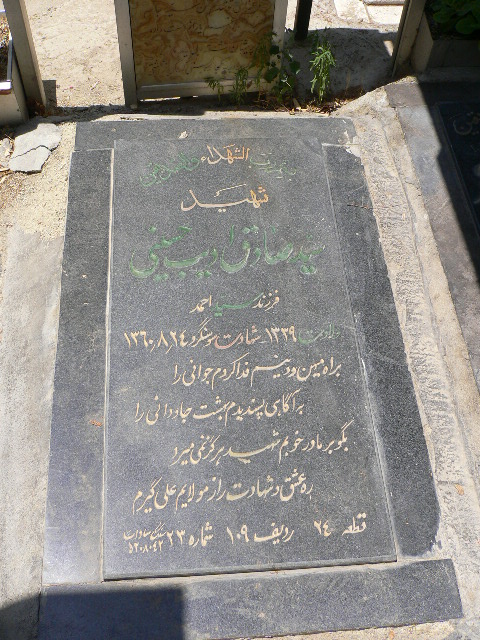 الشهداء
شهید
سید صادق ادیب حسینی
فرزند سید احمد
ولادت ۱۳۳۹ شهادت سوسنگرد ۱۳۶۰،۸،۲۴
براه میهن و دینم فدا کردم جوانی را
به آگاهی پسندیدم بهشت جاودانی را
بگو بر مادر خوبم شهید هرگز نمی‌میرد
ره عشق و شهادت را ز مولایم علی گیرم
قطعه ۲۴ ردیف ۱۰۹ شماره ۲۳